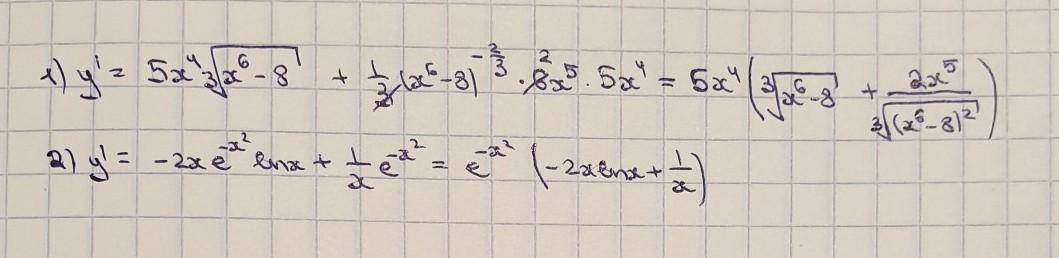 1) y' = 5x⁴ ∛(x⁶-8) + 1/3 (x⁶-8)^(-2/3) · 6² x⁵ · 5x⁴ = 5x⁴ (∛(x⁶-8) + 2x⁵/∛((x⁶-8)²))
2) y' = -2x e^(-x²) ln x + 1/x e^(-x²) = e^(-x²) (-2x ln x + 1/x)